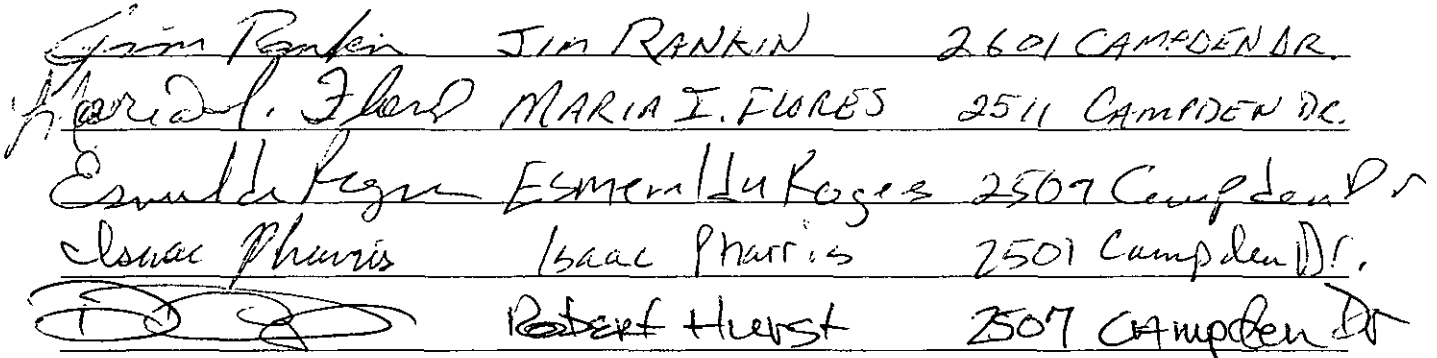 Jim Rankin JIM RANKIN 2601 CAMPDEN DR.
Maria I. Flores MARIA I. FLORES 2511 CAMPDEN DR.
Esmeralda 2507 Campden Dr
Isaac Pharris Isaac Pharris 2501 Campden Dr.
Robert Hurst 2507 CAmpden Dr